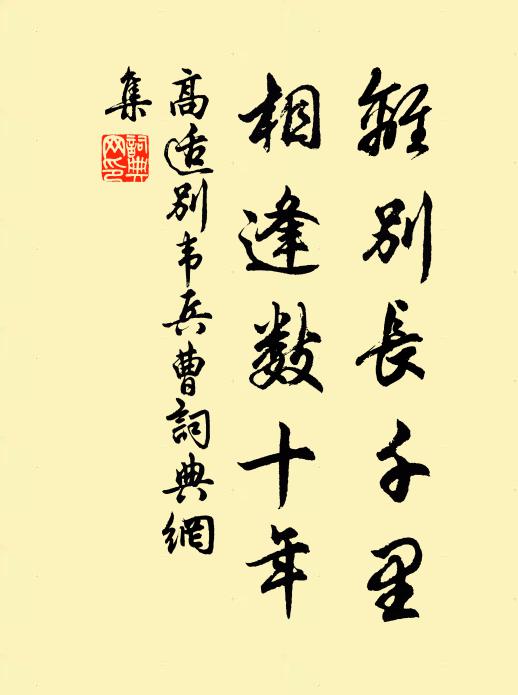 離別長千里
相逢數十年
高适別韦兵曹詞典網
集
詞典
网印